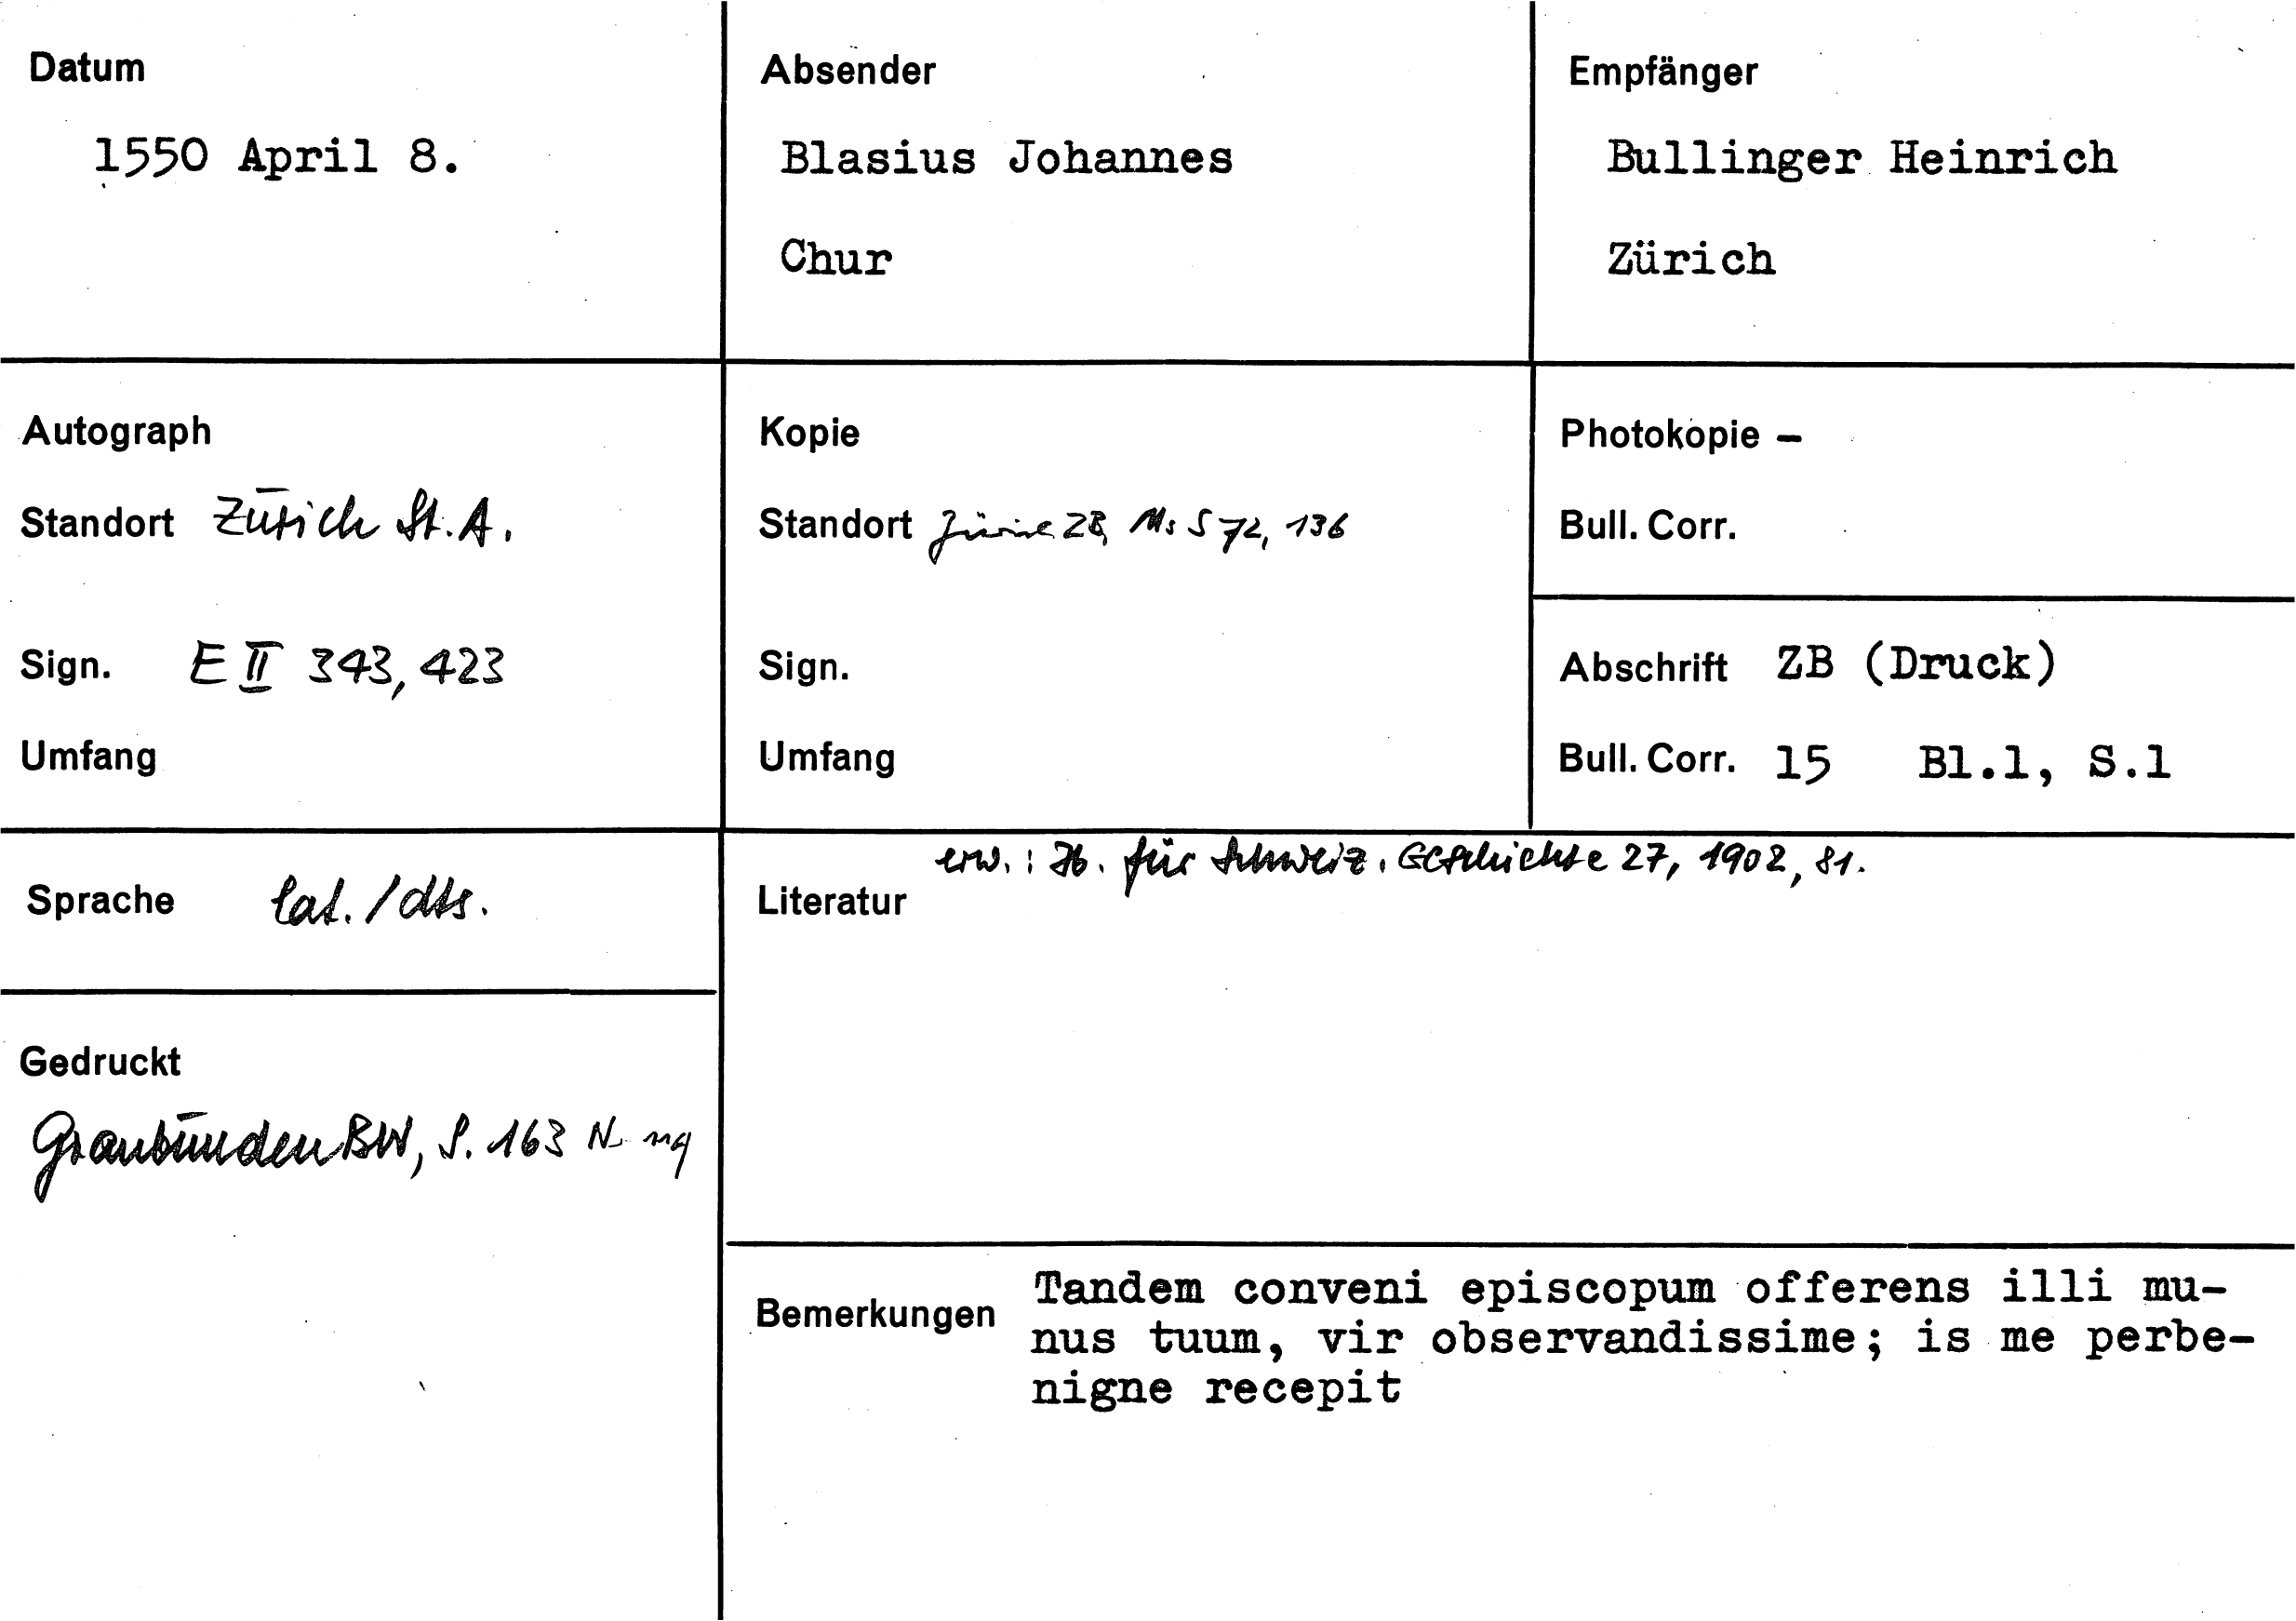 Datum
1550 April 8.
Absender
Blasius Johannes
Chur
Empfänger
Bullinger Heinrich
Zürich
Autograph
Standort Zürich St.A.
Sign. E II 343, 423
Umfang
Kopie
Standort Zürich ZB, Ms S 72, 136
Sign.
Umfang
Photokopie –
Bull. Corr.
Abschrift ZB (Druck)
Bull. Corr. 15 Bl.1, S.1
Sprache lat./dts.
Gedruckt
Graubünden BW, S. 163 N. 119
Literatur
erw.: Jb. für Schweiz. Geschichte 27, 1902, 81.
Bemerkungen
Tandem conveni episcopum offerens illi mu-
nus tuum, vir observandissime; is me perbe-
nigne recepit